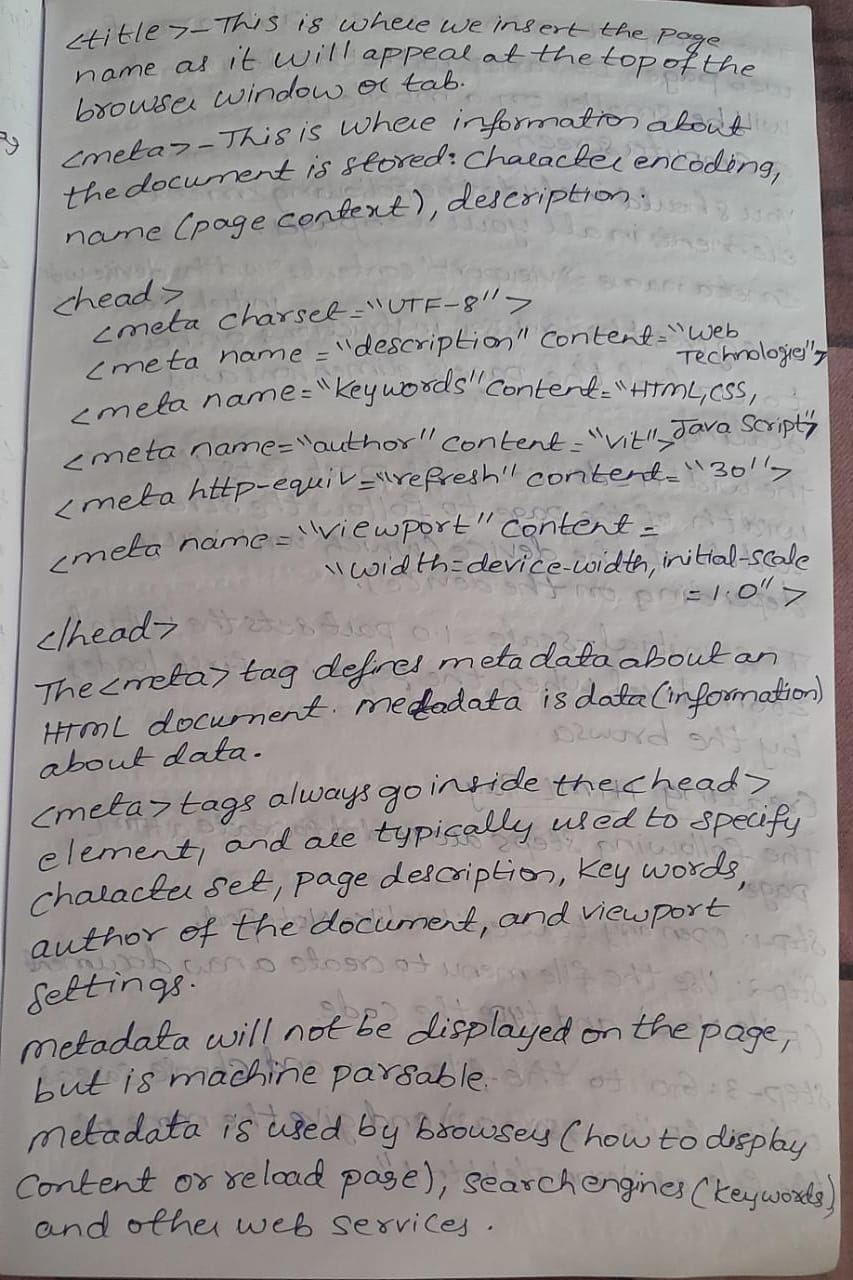 <title>- This is where we insert the page
name as it will appear at the top of the
browser window or tab.
<meta> - This is where information about
the document is stored: Character encoding,
name (page context), description.
<head>
<meta charset="UTF-8">
<meta name = "description" content="Web
Technologies">
<meta name="keywords" content="HTML, CSS,
Java Script">
<meta name="author" content="vit">
<meta http-equiv="refresh" content="30">
<meta name = "viewport" content =
"width=device-width, initial-scale
= 1.0">
</head>
The <meta> tag defines metadata about an
HTML document. metadata is data (information)
about data.
<meta> tags always go inside the <head>
element, and are typically used to specify
character set, page description, key words,
author of the document, and viewport
settings.
metadata will not be displayed on the page,
but is machine parsable.
metadata is used by browsers (how to display
content or reload page), search engines (keywords)
and other web services.